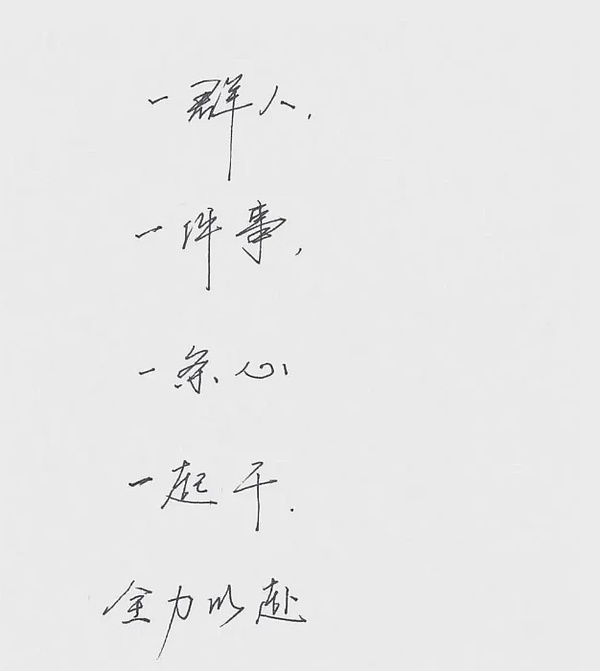 一群人,
一件事,
一条心
一起干.
全力以赴